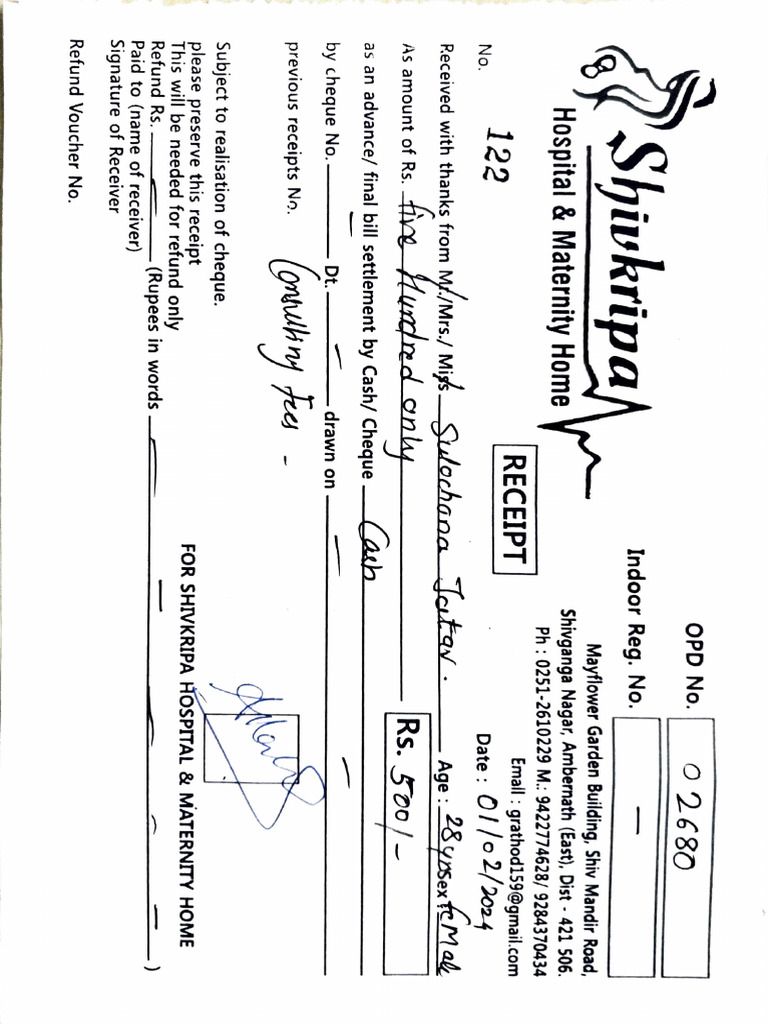 Shivkripa
Hospital & Maternity Home
OPD No. 02680
Indoor Reg. No. —
Mayflower Garden Building, Shiv Mandir Road,
Shivganga Nagar, Ambernath (East), Dist - 421 506.
Ph : 0251-2610229 M.: 9422774628/ 9284370434
Email : grathod159@gmail.com
RECEIPT
No. 122
Date : 01/02/2024
Received with thanks from Mr./Mrs./ Miss Sulochana Jatav. Age : 28yrs Sex : feMale
As amount of Rs. five Hundred only Rs. 500/-
as an advance/ final bill settlement by Cash/ Cheque Cash
by cheque No. — Dt. — drawn on — —
previous receipts No. Consulting Fees -
Subject to realisation of cheque.
please preserve this receipt
This will be needed for refund only
FOR SHIVKRIPA HOSPITAL & MATERNITY HOME
Refund Rs. — (Rupees in words — — — — —)
Paid to (name of receiver)
Signature of Receiver
Refund Voucher No.